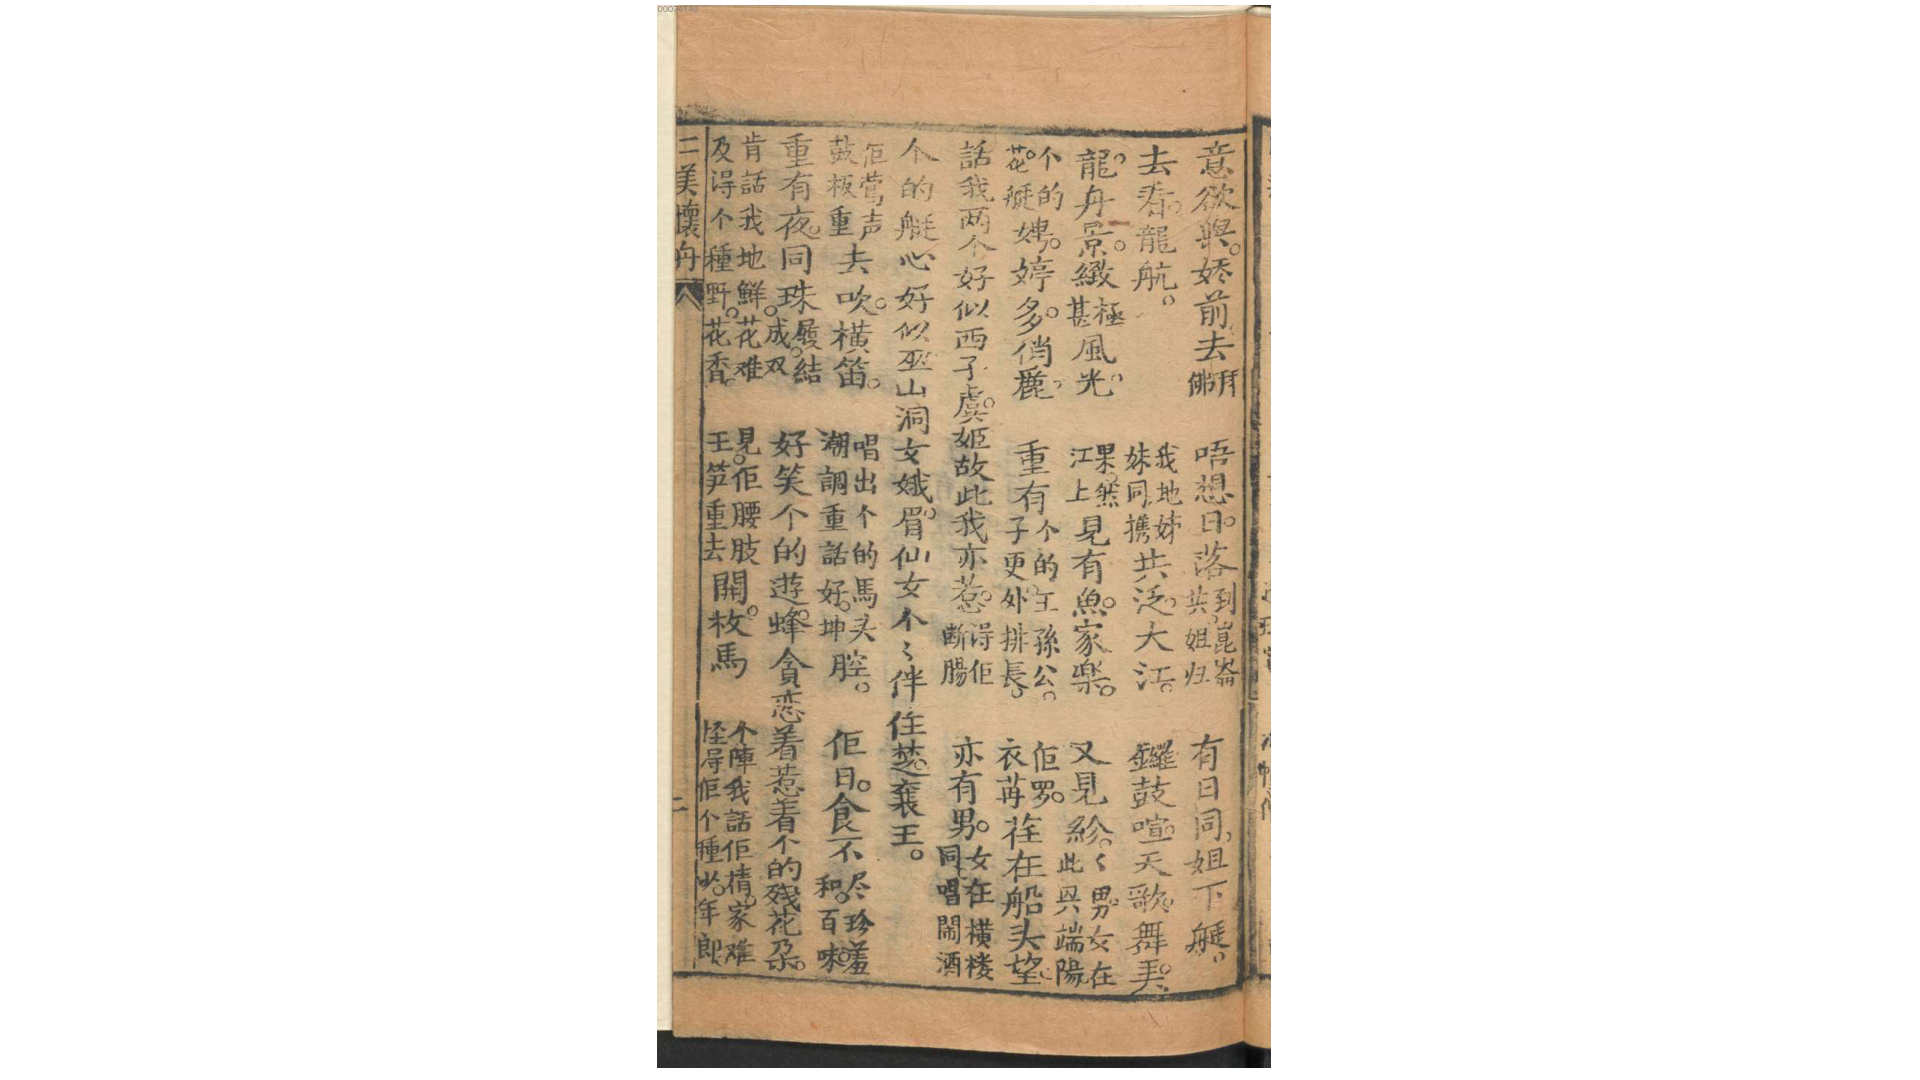 意欲與。娇前去拜佛 唔想日。落到崑崙共。姐归 有日同。姐下艇。
去看。龍航。 我地姊妹同携共泛。大江。 鑼鼓喧天歌。舞弄。
龍舟景。緻極甚風光。 果然。江上見有魚。家楽。 又見紛。〻男。女在此與端陽
个的花。艇娉。婷多。俏麗。 重有个的王孫公。子更外排長。 佢罗。衣苒荏在船头望。
話我两个好似西子虞。姬故此我亦惹。得佢断腸 亦有男。女在横楼同唱鬧酒
个的艇心好似巫山洞女娥。眉仙女个〻伴住楚襄王。
佢鶯声鼓板重去吹。横笛。 唱出个的馬头潮調重話好。坤腔。 佢日。食不尽珍羞和。百味
重有夜。同珠履。結成双 好笑个的遊。蜂貪恋着惹着个的残花朶。
肯話我地鮮。花难及得个種野。花香。 見。佢腰肢王笋重去開。枚馬 个陣我話佢精。家难怪得佢个種少。年郎
二美懷舟 二
00074140